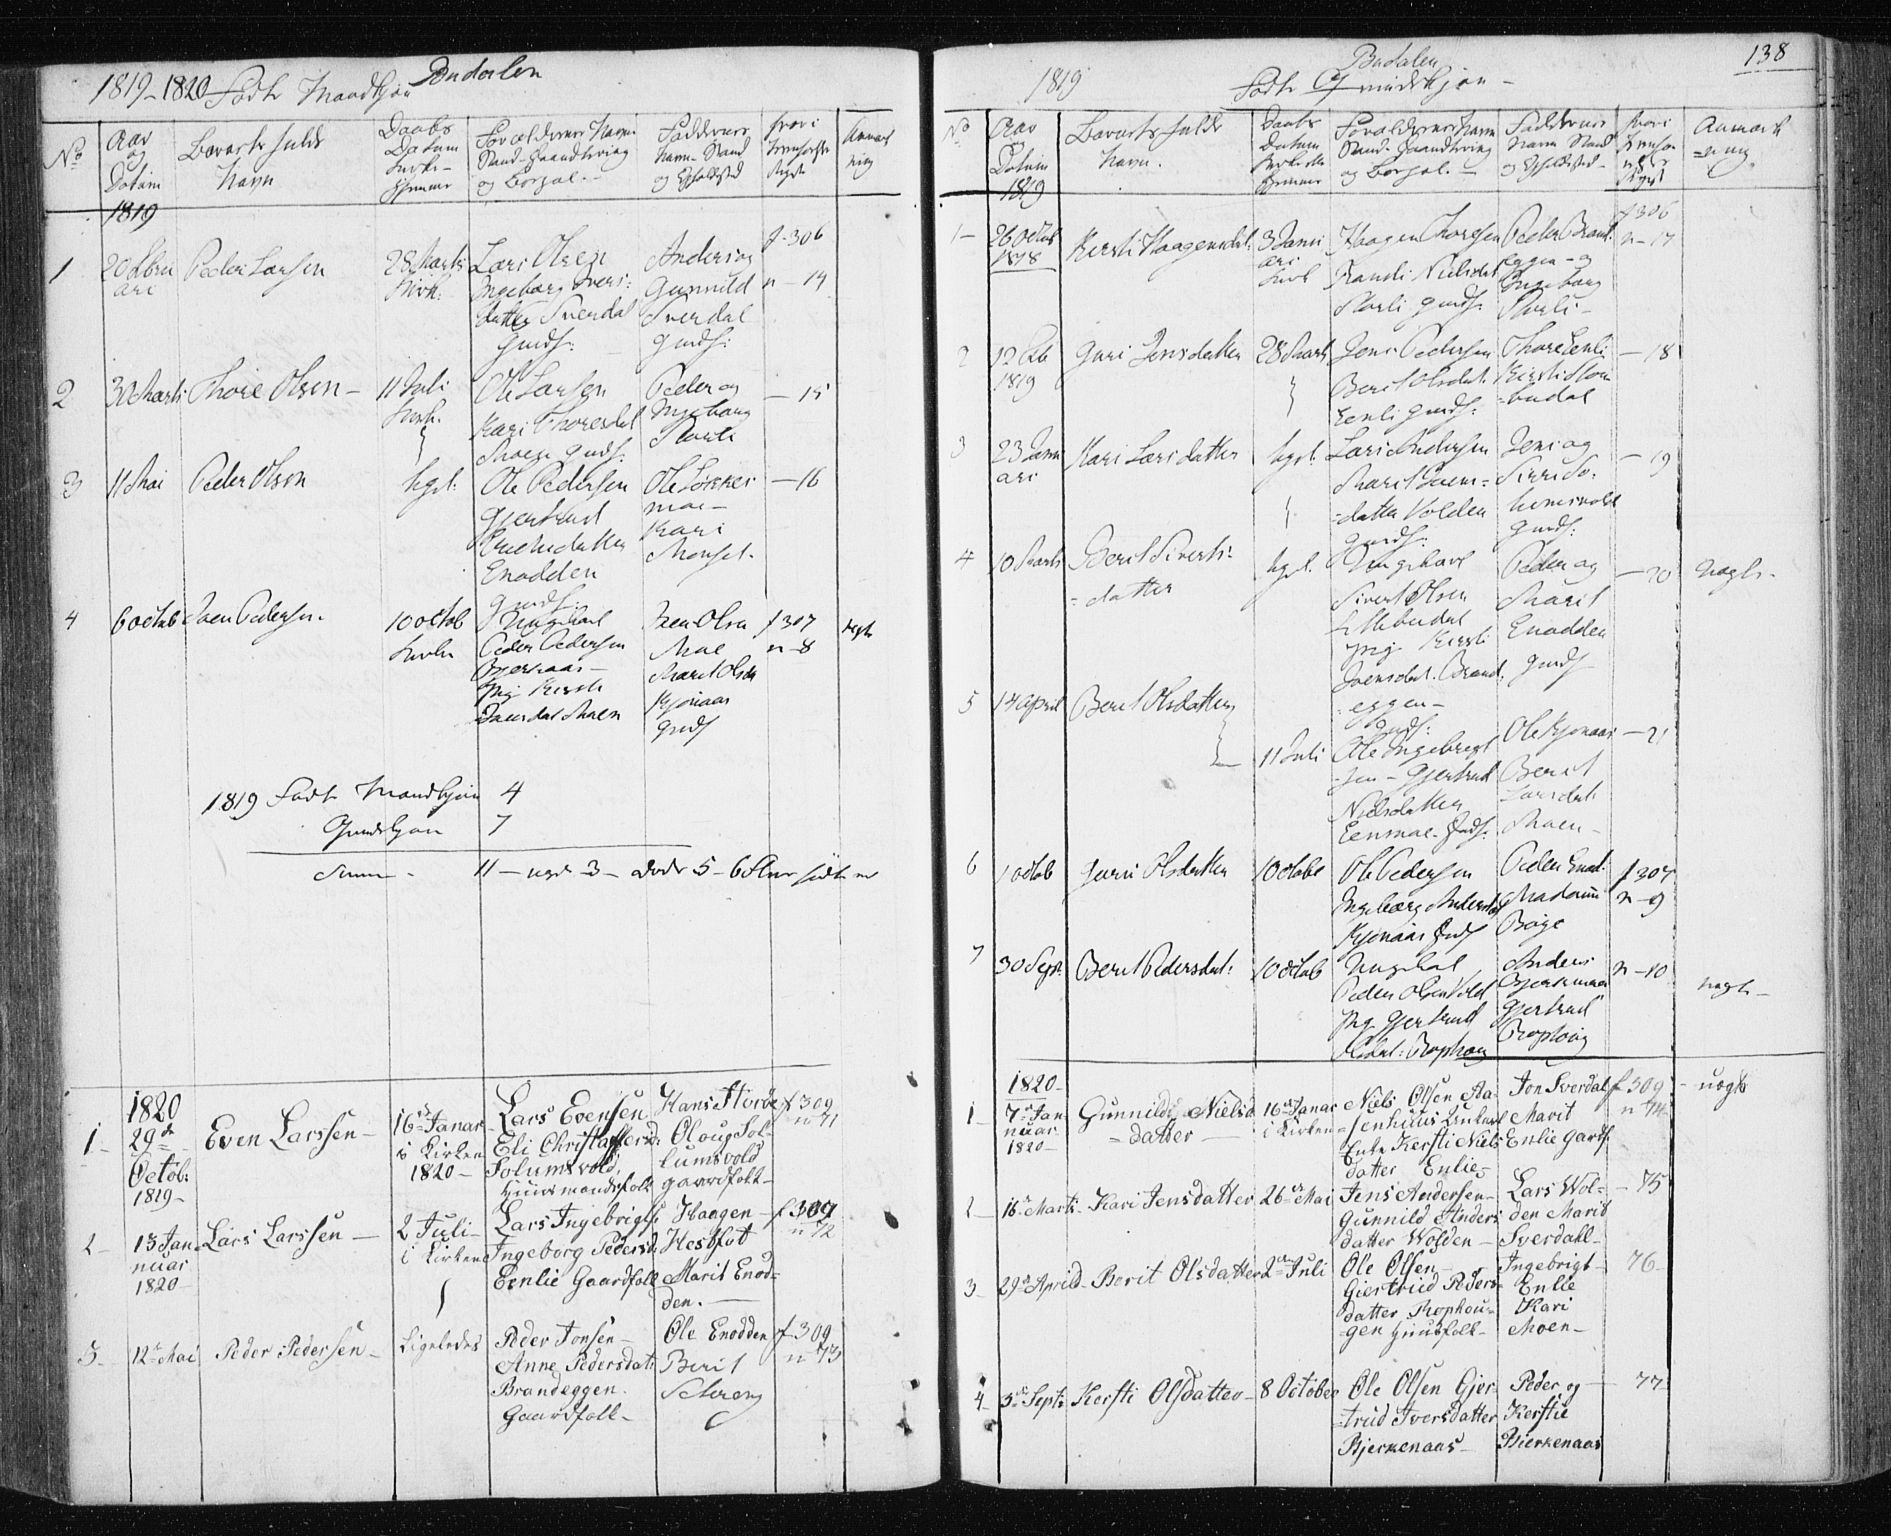 1819-1820 Födte Mandkjön Budalen
No
Aar og Datum
Barnets fulde Navn
Daabs Datum
Forældrenes Navn Stand Haandtering og Bopæl.
Faddernes Navn Stand og Opholdsted
hvor i
Anmærkning
1819
1
20 Febru
ari
Peder Larsen
28 Marts
Kirk:
Lars Olsen
Ingeborg Ivers:
datter Sverdal
Gmdf:
Anders og
Gunnild
Sverdal
Gmdf:
f-306
n-14
2
30 Marts
Thore Olsen-
11 Juli
Kirk.
Ole Larsen
Kari Thoresdat
Moen Gmdf:
Peder og
Ingeborg
Storli
-15
3
11 Mai
Peder Olsen
ligel:
Ole Pedersen
Gjertrud
Enodden
Gmdf:
Ole Lökkes
moe-
Kari
-16
4
6 octob
Joen Pedersen.
10 octob
Kirken
Ungkarl
Peder Pedersen
Bjerknaas-
Pig: Kirsti
Joensdat Moen
Joen Olsen
Moe
Marit Olsda
Kjönaas
Gmdf
f 307
n-8
uegte
1819 Födte Mandkjön 4
Qvindekjön 7
Summa - 11 - uegte 3 - döde 5 - 6 flere födte end
1820
1-
29de
Octob:
1819-
Even Larssen-
16de Januar
i Kirken
1820-
Lars Evensen
Eli Christaffersd:
Solumsvold,
Huusmandsfolk
Hans Storöe
Oloug Sol-
lumsvold
gaardfolk-
f 309
n 71
2-
13 Jan
nuar
1820-
Lars Larssen-
2 Juli-
i Kirken
Lars Ingebrigts:
Ingeborg Pedersd:
Eenlie Gaardfolk
Haagen
Hesttröt
Marit Enod-
den.-
f 309
n 72
3-
12te Mai
Peder Pedersen-
Ligeledes
Peder Jonsen-
Anne Pedersdat:
Brandeggen.
Gaardfolk-
Ole Enodden
Berit
f-309
n 73
138
1819
Budalen
Födte Qvindekjön-
No
Aar og Datum
Barnets fulde Navn.
Daabs Datum
Forældrenes Navn Stand Haandtering og Bopæl.-
Faddernes Navn Stand og Opholdsted-
hvor i
Anmærk
=ning
1819
1-
26 octob
1818
Kirsti Haagensdat:
3 Janu
ari
Kirk
Haagen Thoresen
Randi Nielsdat
Storli Gmdf:
Peder Brand
eggen-og
Ingeborg
Storli-
f 306
n-17
2
12 Feb
1819
Guri Jensdatter
28 Marts
Jens Pedersen
Berit Olsdat:
Eenli Gmdf:
Thore Eenli
Kirsti Stor
=budal
-18
3
23 Janu
ari
Kari Larsdatter
ligel:
Lars Andersen
Marit Joens=
=datter Volden
Gmdf:
Jens og
Siri So-
lumsvold
Gmdf:
-19
4
10 Marts
Berit Siverts=
=datter
ligel:
Ungkarl
Sivert Olsen
Littlebudal
Pig: Kirsti
Joensdat: Brand
eggen-
Gmdf:
Peder og
Marit
Enodden
Gmdf
-20
Uegte-
5
14 April
Berit Olsdatter
11 Juli
Ole Ingebrigt
sen-Gjertrud
Nielsdatter
Eenmoe-Gmdf:
Ole Kjönaas
Berit
Larsdat:
Moen-
-21
6
1 octob
Guri Olsdatter
10 octobr
Ole Pedersen
Ingeborg Andersdat
Kjönaas Gmdf
Peder Enod:
Madame
Böye
f 307
n-9
7
30 Sept:
Berit Pedersdat:
10 octob
Ungkarl
Peder Olsen Vold
Pig: Gjertrud
Olsdat: Rophoug
Anders
Bjerknaas
Gjertrud
Rophoug
n-10
uegte-
1820-
1-
7de Jan
nuar
1820-
Gunnild Niels=
=datter-
16de Januar
i Kirken
Niels Olsen Aa-
senhuus
Enke Kersti Niels
datter Enlie-
Jon Sverdal
Marit
Enlie Gardf
f 309
n 74
-uegte
2-
16de Marts-
Kari Jensdatter
26de Mai
Jens Andersen-
Gunnild Anders
datter Wolden-
Lars Wol=
den Marit
Sverdahl-
-75
3-
29de April-
Berit Olsdatter
2den Juli
Ole Olsen-
Giertrud Peders-
datter Rophou=
=gen Huusfolk-
Ingebrigt-
Enlie
Kari
Moen-
76-
4-
3de Sept:
Kersti Olsdatter-
8 October
Ole Olsen Gjer-
=trud Iversdatter
Bjerkenaas-
Peder og
Kerstie
Bierkenaas
77-